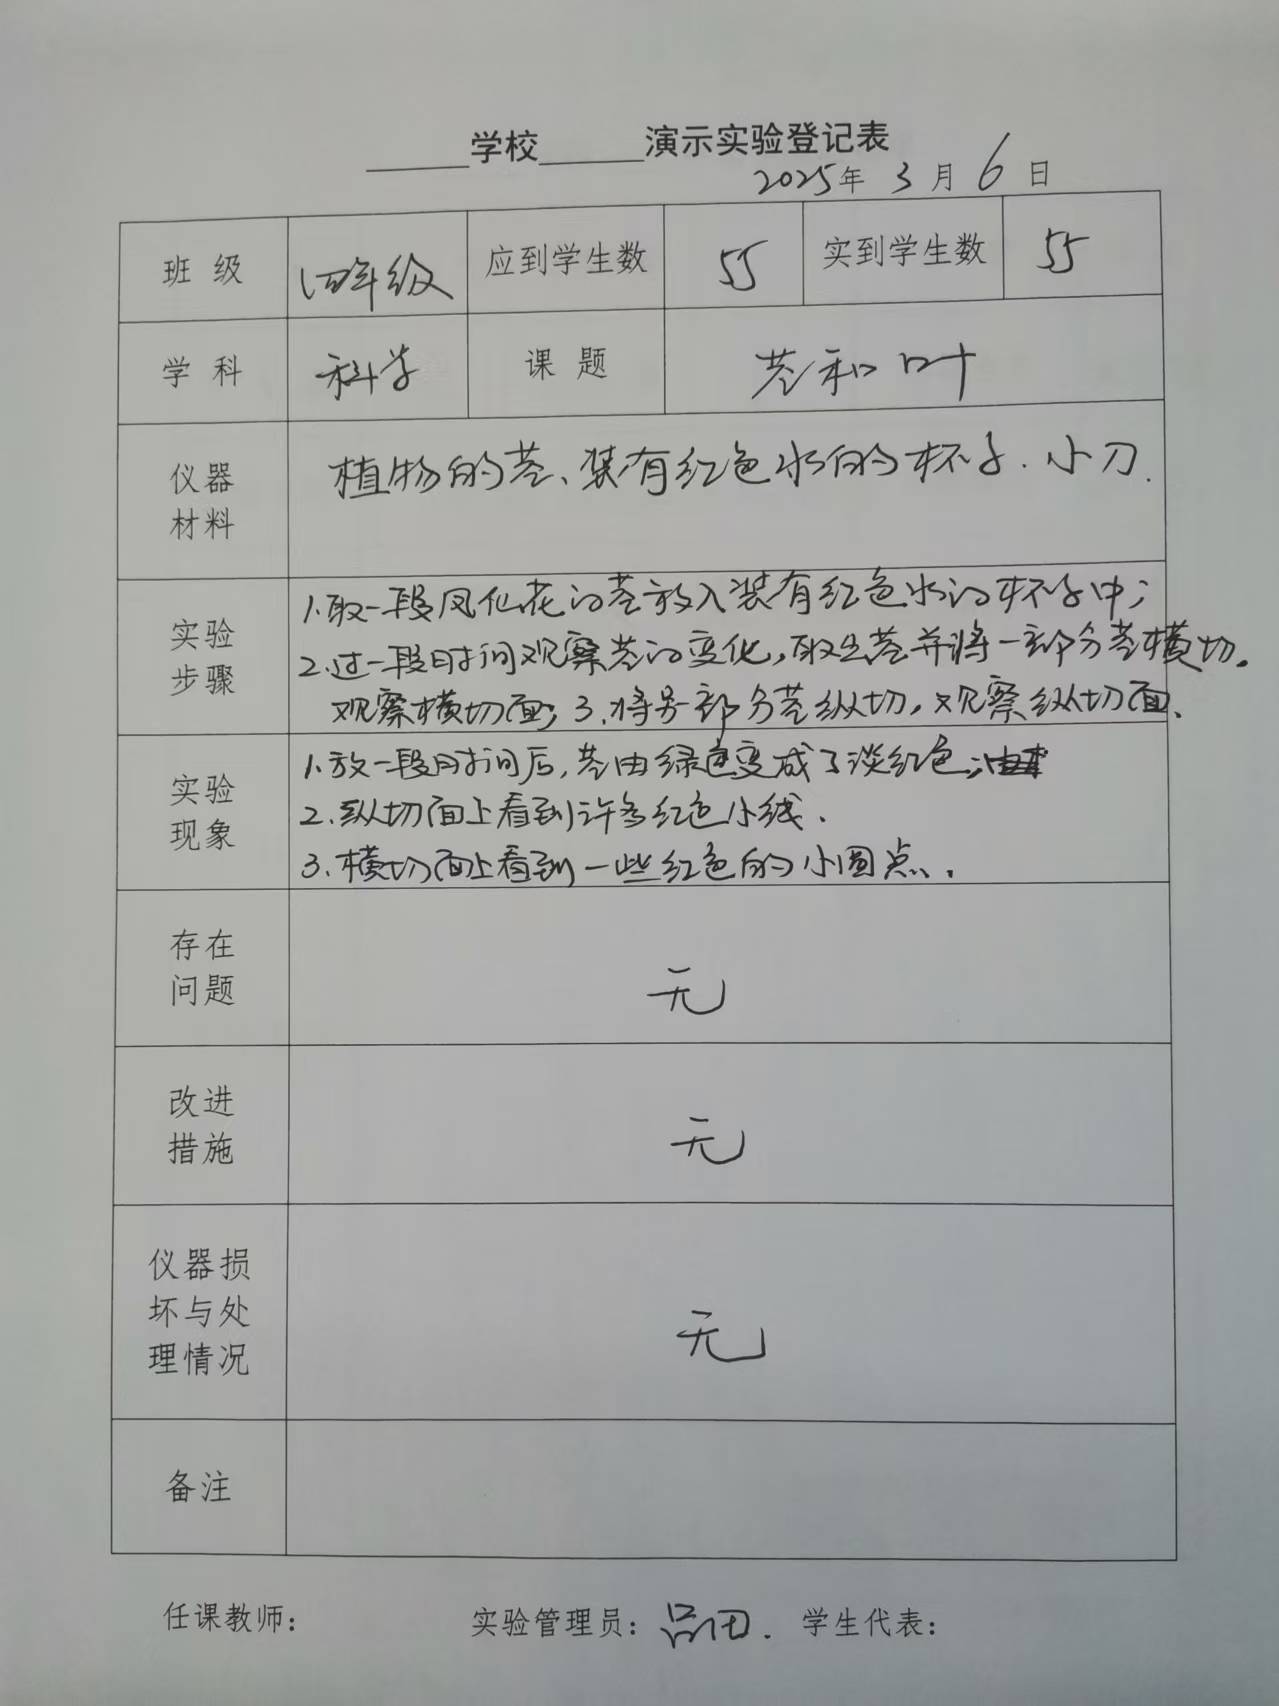 ______学校______演示实验登记表
2025年 3月6日
班级 四年级 应到学生数 55 实到学生数 55
学科 科学 课题 茎和叶
仪器材料 植物的茎、装有红色水的杯子.小刀.
实验步骤 1.取一段凤仙花的茎放入装有红色水的杯子中；
2.过一段时间观察茎的变化，取出茎并将一部分茎横切。
观察横切面；3.将另部分茎纵切，观察纵切面、
实验现象 1.放一段时间后，茎由绿色变成了淡红色；
2.纵切面上看到许多红色小线.
3.横切面上看到一些红色的小圆点.
存在问题 无
改进措施 无
仪器损坏与处理情况 无
备注
任课教师： 实验管理员： 学生代表：